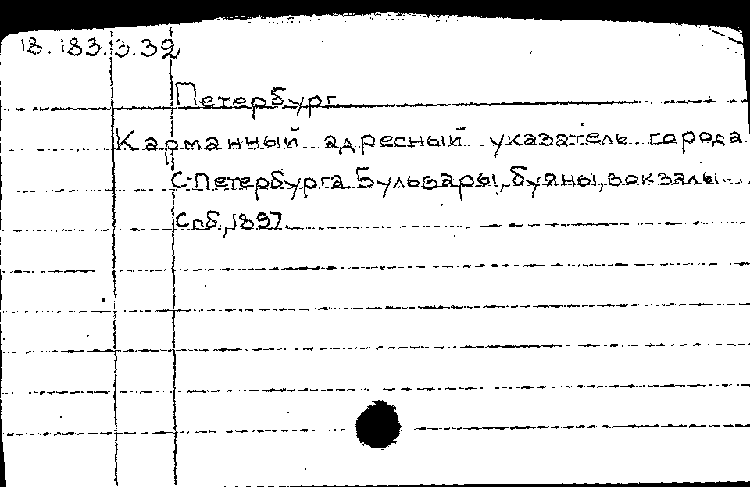 18.183.3.32
Петербург
Карманный адресный указатель города
С-Петербурга. Бульвары, буяны, вокзалы
Спб., 1897